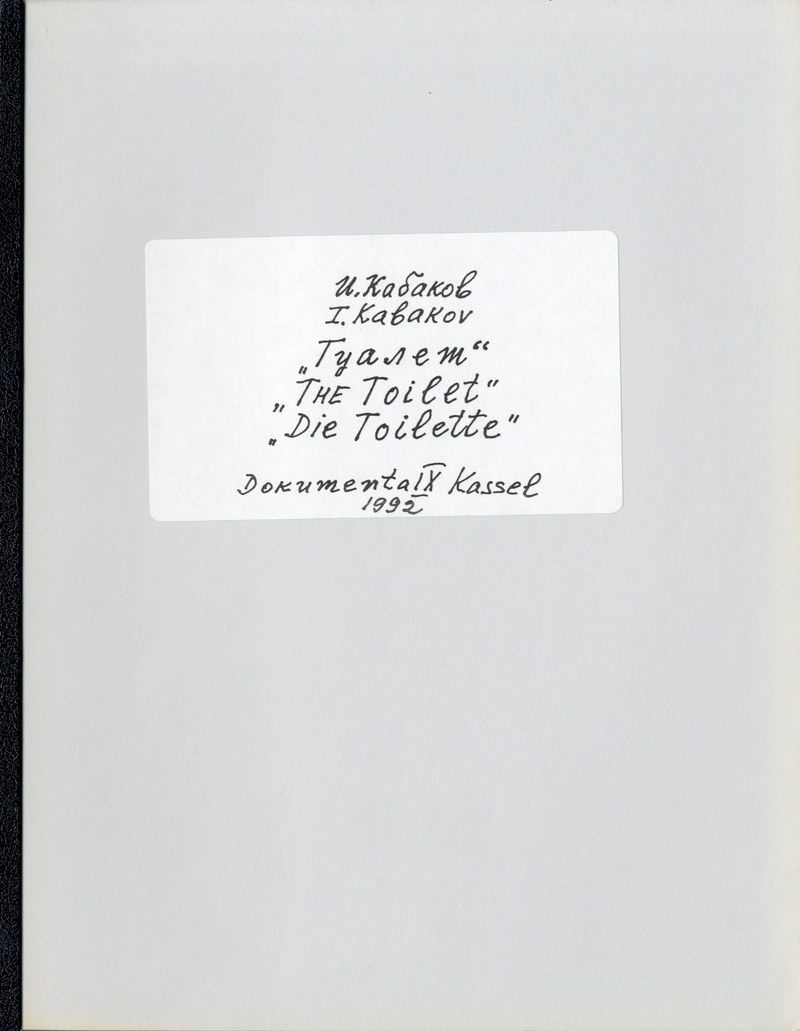 И. Кабаков
I. Kabakov
„Туалет“
„THE Toilet"
„Die Toilette"
Dokumenta IX Kassel
1992